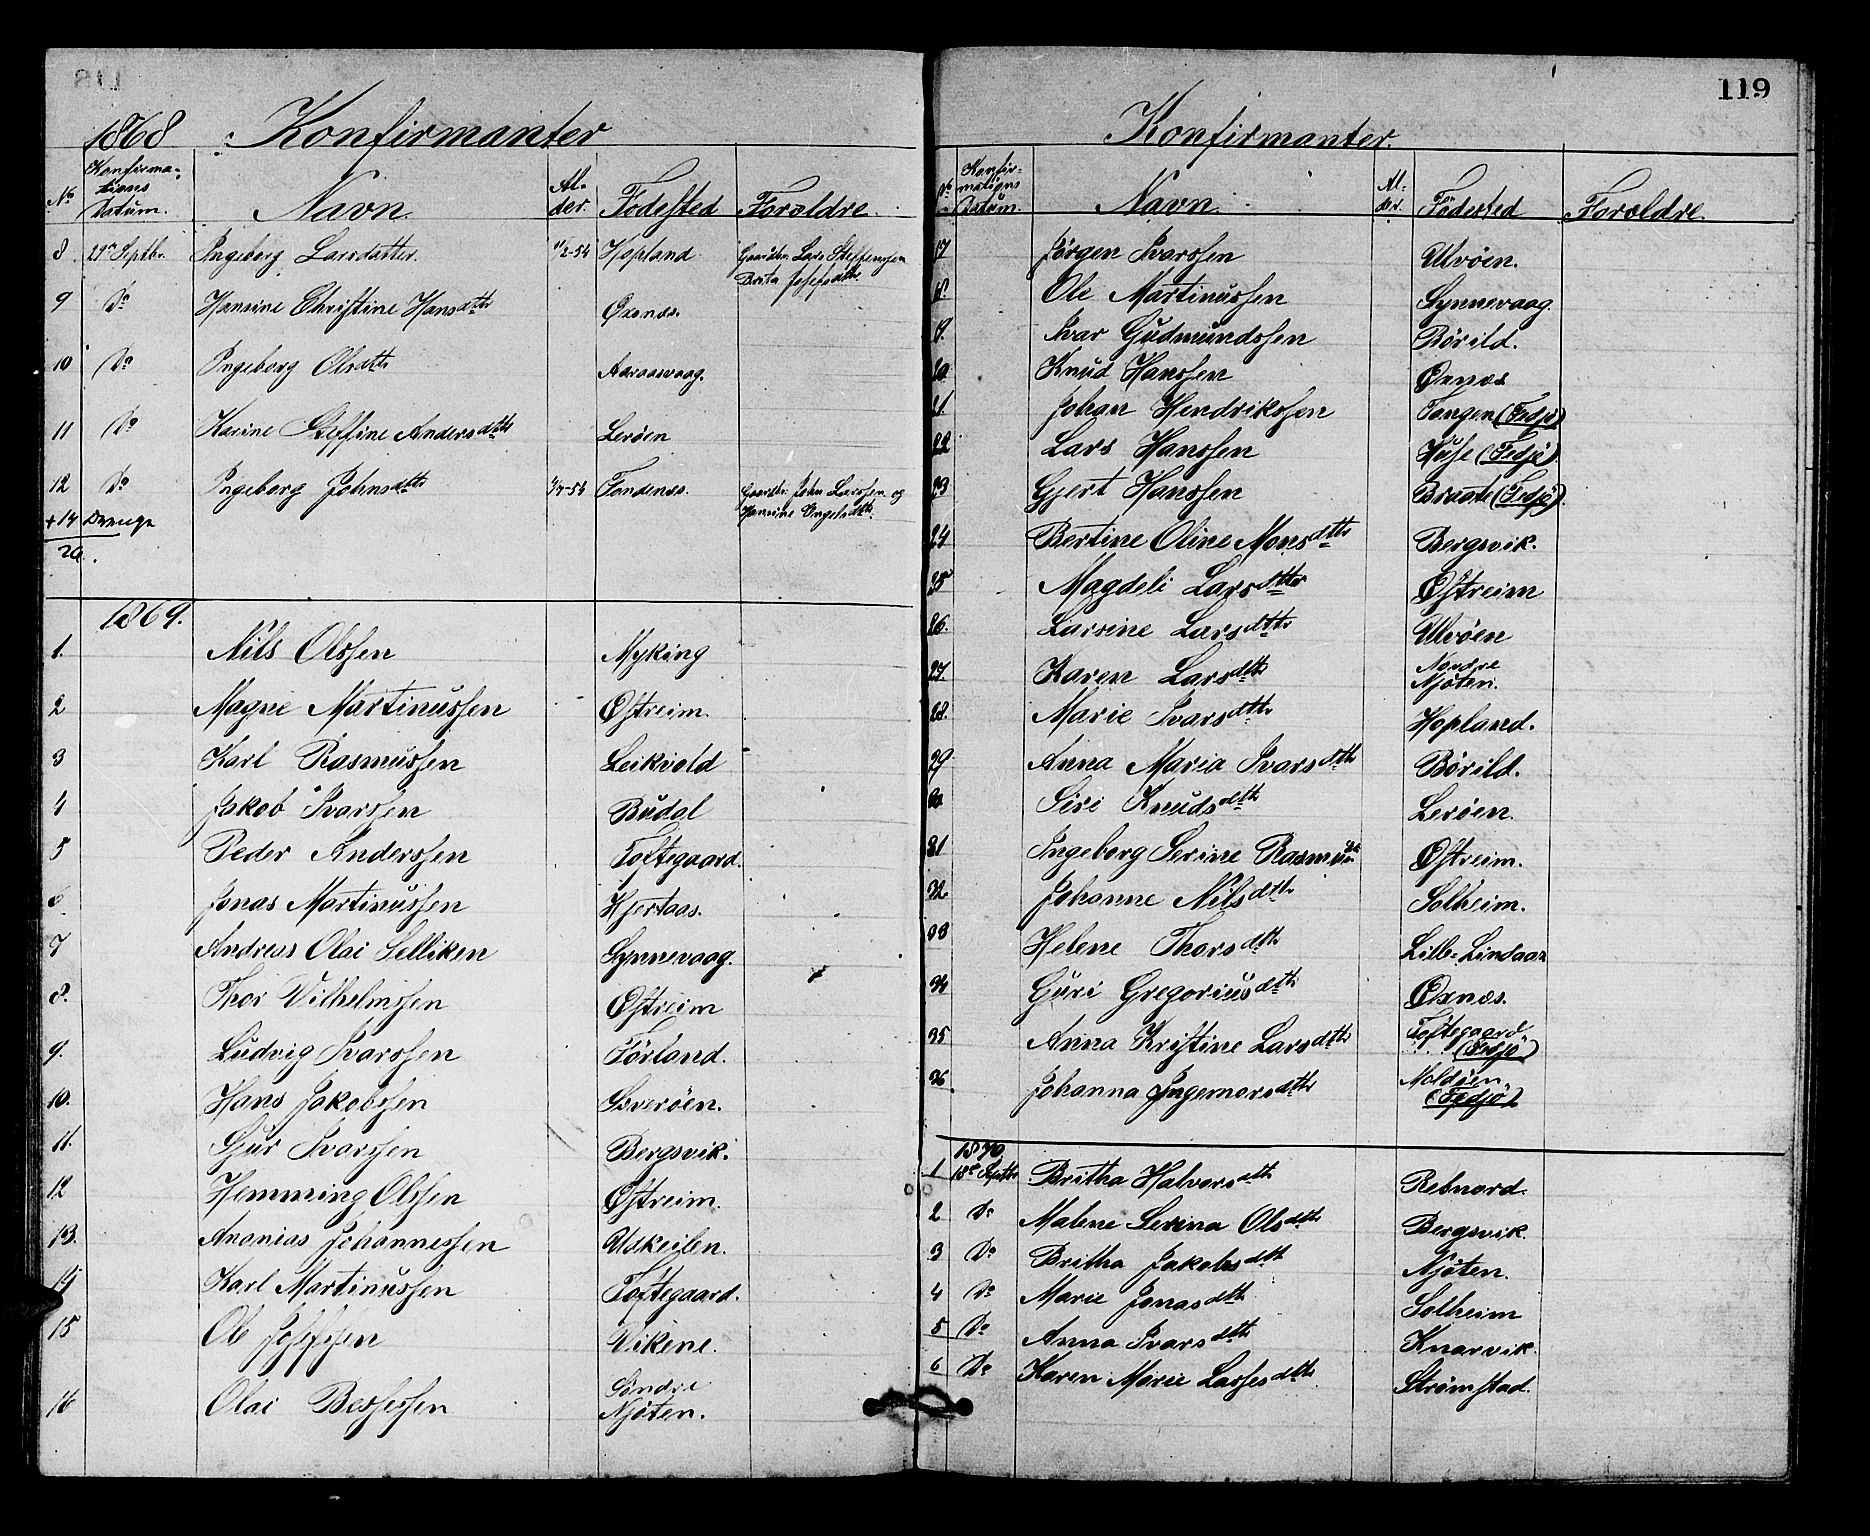 1868 Konfirmanter
No Konfirmations Datum. Navn. Alder. Födested Forældre.
8 29de Septbr. Ingeborg Larsdatter. 11/2-54 Hopland Gaardbr. Lars Steffensen
Brita Josefsdttr.
9 Do Hansine Christine Hansdttr Oxenæs.
10 Do Ingeborg Olsdttr Aaraasvaag.
11 Do Karine Steffine Andersdttr Leröen
12 Do Ingeborg Johnsdttr 4/7-54 Fondenes. Gaardbr. John Larssen og
Hansine Engelsdttr.
+14 Drenge
26.
1869.
1. Nils Olssen Myking
2 Magne Martinussen Østreim.
3 Karl Rasmussen Leikvold
4 Jakob Ivarssen Budal
5 Peder Anderssen Toftegaard.
6 Jonas Martinussen Hjertaas.
7 Andreas Olai Selliken Synnevaag.
8. Thor Vilhelmssen Østreim
9. Ludvig Ivarssen Förland.
10. Hans Jakobssen Sverøen.
11. Sjur Ivarssen Bergsvik.
12 Hemming Olssen Østreim.
13. Ananias Johannessen Udkeilen.
14 Karl Martinussen Toftegaard.
15 Ole Josefssen Vikene.
16 Olai Bessessen Söndre
Njöten.
119
Konfirmanter.
No Konfirmations Datum. Navn. Alder. Födested Forældre.
17 Jörgen Ivarssen Ulvöen.
18. Ole Martinussen Synnevaag.
19. Ivar Gudmundssen Börild.
20 Knud Hanssen Oxnæs
21. Johan Hendrikssen Tangen (Fedjö)
22 Lars Hanssen Huse (Fedjö)
23 Gjert Hanssen Braate (Fedjö).
24 Bertine Oline Monsdttr Bergsvik.
25 Magdeli Larsdttr Østreim
26. Larsine Larsdttr Ulvöen
27 Karen Larsdttr Nordre
Njöten.
28. Marie Ivarsdttr Hopland.
29 Anna Maria Ivarsdttr Börild.
30 Siri Knudsdttr Leröen.
31 Ingeborg Serine Rasmusdtr Østreim.
32 Johanne Nilsdttr Solheim.
33 Helene Thorsdttr Lille-Lindaas
34 Guri Gregoriusdttr Oxnæs.
35 Anna Kristine Larsdttr Toftegaard
(Fedjö)
36 Johanna Ingemarsdttr Moldöen
(Fedjö)
1870.
1 18de Septbr Britha Halvorsdttr Rebnord.
2 Do Malene Serina Olsdttr Bergsvik
3 Do Britha Jakobsdttr Njöten.
4 Do Marie Jonasdttr Solheim
5 Do Anna Ivarsdttr Knarvik.
6 Do Karen Marie Lassesdttr Strømstad.